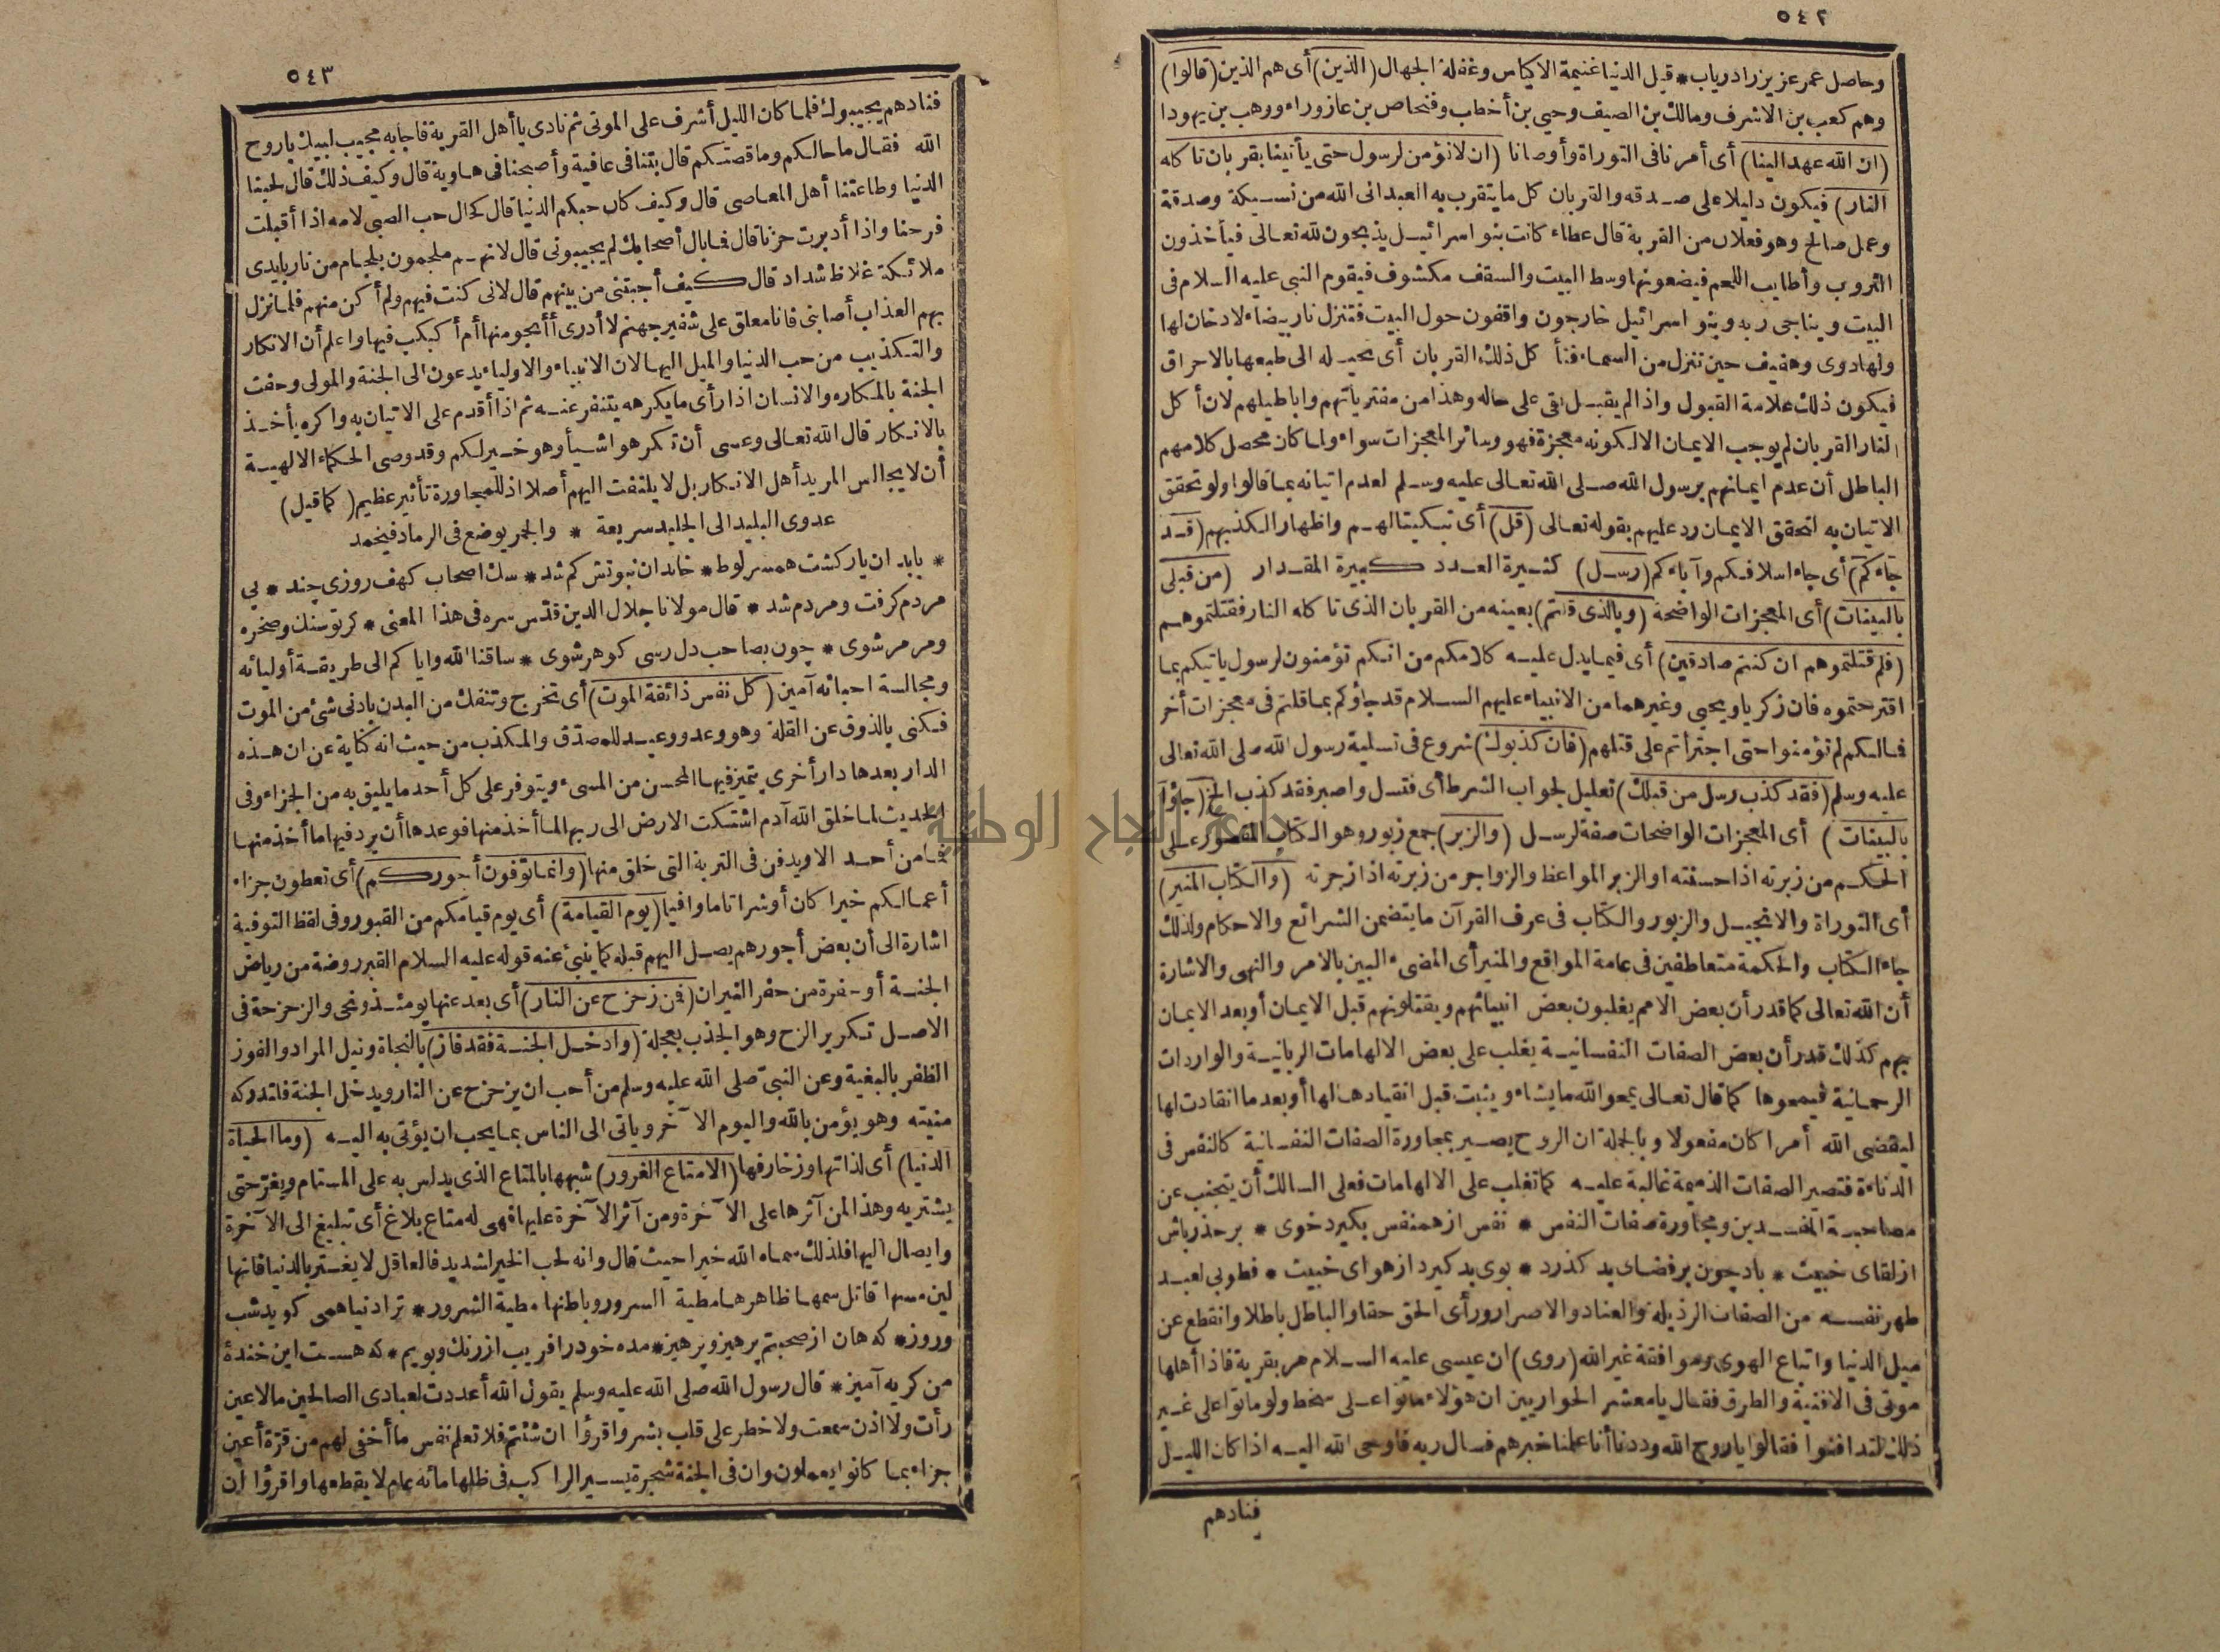 ٥٤٢
وحاصل عمر عزيز را درياب * قيل الدنيا غنيمة الاكياس وغفلة الجهال (الذين) أى هم الذين (قالوا)
وهم كعب بن الاشرف ومالك بن الصيف وحيي بن أخطب وفنحاص بن عازوراء ووهب بن يهودا
(ان الله عهد الينا) أى أمرنا فى التوراة وأوصانا (ان لا نؤمن لرسول حتى يأتينا بقربان تاكله
النار) فيكون دليلا على صدقه والقربان كل ما يتقرب به العبد الى الله من نسيكة وصدقة
وعمل صالح وهو فعلان من القربة قال عطاء كانت بنو اسرائيل يذبحون لله تعالى فيأخذون
الثروب وأطايب اللحم فيضعونها وسط البيت والسقف مكشوف فيقوم النبى عليه السلام فى
البيت ويناجى ربه وبنو اسرائيل خارجون واقفون حول البيت فتنزل نار بيضاء لا دخان لها
ولها دوى وهفيف حين تنزل من السماء فتأكل ذلك القربان أى تحيله الى طبعها بالاحراق
فيكون ذلك علامة القبول واذا لم يقبل بقى على حاله وهذا من مفترياتهم واباطيلهم لان أكل
النار القربان لم يوجب الايمان الا لكونه معجزة فهو وسائر المعجزات سواء ولما كان محصل كلامهم
الباطل أن عدم ايمانهم برسول الله صلى الله تعالى عليه وسلم لعدم اتيانه بما قالوا ولو تحقق
الاتيان به لتحقق الايمان رد عليهم بقوله تعالى (قل) أى تبكيتا لهم واظهارا لكذبهم (قد
جاءكم) أى جاء اسلافكم وآباءكم (رسل) كثيرة العدد كبيرة المقدار (من قبلى
بالبينات) أى المعجزات الواضحة (وبالذى قلتم) بعينه من القربان الذى تاكله النار فقتلتموهم
(فلم قتلتموهم ان كنتم صادقين) أى فيما يدل عليه كلامكم من انكم تؤمنون لرسول ياتيكم بما
اقترحتموه فان زكريا ويحيى وغيرهما من الانبياء عليهم السلام قد جاؤكم بما قلتم فى معجزات أخر
فما لكم لم تؤمنوا حتى اجترأتم على قتلهم (فان كذبوك) شروع فى تسلية رسول الله صلى الله تعالى
عليه وسلم (فقد كذب رسل من قبلك) تعليل لجواب الشرط أى فتسل واصبر فقد كذب الخ (جاؤا
بالبينات) أى المعجزات الواضحات صفة لرسل (والزبر) جمع زبور وهو الكتاب المقصور على
الحكم من زبرته اذا حسنته او الزبر المواعظ والزواجر من زبرته اذا زجرته (والكتاب المنير)
أى التوراة والانجيل والزبور والكتاب فى عرف القرآن ما يتضمن الشرائع والاحكام ولذلك
جاء الكتاب والحكمة متعاطفين فى عامة المواقع والمنير أى المضىء البين بالامر والنهى والاشارة
أن الله تعالى كما قدر أن بعض الامم يغلبون بعض انبيائهم ويقتلونهم قبل الايمان أو بعد الايمان
بهم كذلك قدر أن بعض الصفات النفسانية يغلب على بعض الالهامات الربانية والواردات
الرحمانية فيمحوها كما قال تعالى يمحو الله ما يشاء ويثبت قبل انقيادها لها أو بعد ما انقادت لها
ليقضى الله أمرا كان مفعولا وبالجملة ان الروح يصير بمجاورة الصفات النفسانية كالنفس فى
الدناءة فتصير الصفات الذميمة غالبة عليه كما تغلب على الالهامات فعلى السالك أن يتجنب عن
مصاحبة المفسدين ومجاورة صفات النفس * نفس از همنفس بكيرد خوى * بر حذر باش
از لقاى خبيث * باد چون بر فضاى بد كذرد * بوى بد كيرد از هواى خبيث * فطوبى لعبد
طهر نفسه من الصفات الرذيلة والعناد والاصرار ورأى الحق حقا والباطل باطلا وانقطع عن
ميل الدنيا واتباع الهوى وموافقة غير الله (روى) ان عيسى عليه السلام مر بقرية فاذا أهلها
موتى فى الافنية والطرق فقال يا معشر الحواريين ان هؤلاء ماتوا على سخط ولو ماتوا على غير
ذلك لتدافنوا فقالوا يا روح الله وددنا أنا علمنا خبرهم فسال ربه فاوحى الله اليه اذا كان الليل
فنادهم
٥٤٣
فنادهم يجيبوك فلما كان الليل أشرف على الموتى ثم نادى يا أهل القرية فاجابه مجيب لبيك يا روح
الله فقال ما حالكم وما قصتكم قال بتنا فى عافية وأصبحنا فى هاوية قال وكيف ذلك قال لحبنا
الدنيا وطاعتنا أهل المعاصى قال وكيف كان حبكم الدنيا قال كحال حب الصبى لامه اذا أقبلت
فرحنا واذا أدبرت حزنا قال فما بال أصحابك لم يجيبونى قال لانهم ملجمون بلجام من نار بايدى
ملائكة غلاظ شداد قال كيف أجبتنى من بينهم قال لانى كنت فيهم ولم أكن منهم فلما نزل
بهم العذاب أصابنى فانا معلق على شفير جهنم لا أدرى أأنجو منها أم أكبكب فيها واعلم أن الانكار
والتكذيب من حب الدنيا والميل اليها لان الانبياء والاولياء يدعون الى الجنة والمولى وحفت
الجنة بالمكاره والانسان اذا رأى ما يكرهه يتنفر عنه ثم اذا أقدم على الاتيان به واكره يأخذ
بالانكار قال الله تعالى وعسى أن تكرهوا شيأ وهو خير لكم وقد وصى الحكماء الالهية
أن لا يجالس المريد أهل الانكار بل لا يلتفت اليهم أصلا اذ للمجاورة تأثير عظيم (كما قيل)
عدوى البليد الى الجليد سريعة * والجمر يوضع فى الرماد فيخمد
* بابدان يار كشت همسر لوط * خاندان نبوتش كم شد * سك اصحاب كهف روزى چند * پى
مردم كرفت ومردم شد * قال مولانا جلال الدين قدس سره فى هذا المعنى * كر تو سنك وصخره
ومرمر شوى * چون بصاحب دل رسى كوهر شوى * ساقنا الله واياكم الى طريقة أوليائه
ومجالسة احبائه آمين (كل نفس ذائقة الموت) أى تخرج وتنفك من البدن بادنى شئ من الموت
فكنى بالذوق عن القلة وهو وعد ووعيد للمصدق والمكذب من حيث انه كناية عن ان هذه
الدار بعدها دار أخرى يتميز فيها المحسن من المسىء ويتوفر على كل أحد ما يليق به من الجزاء وفى
الحديث لما خلق الله آدم اشتكت الارض الى ربها لما أخذ منها فوعدها أن يرد فيها ما أخذ منها
فما من أحد الا ويدفن فى التربة التى خلق منها (وانما توفون أجوركم) أى تعطون جزاء
أعمالكم خيرا كان أو شرا تاما وافيا (يوم القيامة) أى يوم قيامكم من القبور وفى لفظ التوفية
اشارة الى أن بعض أجورهم يصل اليهم قبله كما ينبئ عنه قوله عليه السلام القبر روضة من رياض
الجنة أو حفرة من حفر النيران (فمن زحزح عن النار) أى بعد عنها يومئذ ونجى والزحزحة فى
الاصل تكرير الزح وهو الجذب بعجلة (وادخل الجنة فقد فاز) بالنجاة ونيل المراد والفوز
الظفر بالبغية وعن النبى صلى الله عليه وسلم من أحب ان يزحزح عن النار ويدخل الجنة فلتدركه
منيته وهو يؤمن بالله واليوم الآخر وياتى الى الناس بما يحب ان يؤتى به اليه (وما الحياة
الدنيا) أى لذاتها وزخارفها (الا متاع الغرور) شبهها بالمتاع الذى يدلس به على المستام ويغتر حتى
يشتريه وهذا لمن آثرها على الآخرة ومن آثر الآخرة عليها فهى له متاع بلاغ أى تبليغ الى الآخرة
وايصال اليها فلذلك سماه الله خيرا حيث قال وانه لحب الخير لشديد فالعاقل لا يغتر بالدنيا فانها
لين مسها قاتل سمها ظاهرها مطية السرور وباطنها مطية الشرور * ترا دنيا همى كويد شب
وروز * كه هان از صحبتم پرهيز وپرهيز * مده خود را فريب از رنك وبويم * كه هست اين خنده
من كريه آميز * قال رسول الله صلى الله عليه وسلم يقول الله أعددت لعبادى الصالحين ما لا عين
رأت ولا اذن سمعت ولا خطر على قلب بشر واقرؤا ان شئتم فلا تعلم نفس ما أخفى لهم من قرة أعين
جزاء بما كانوا يعملون وان فى الجنة شجرة يسير الراكب فى ظلها مائة عام لا يقطعها واقرؤا ان
جامعة النجاح الوطنية